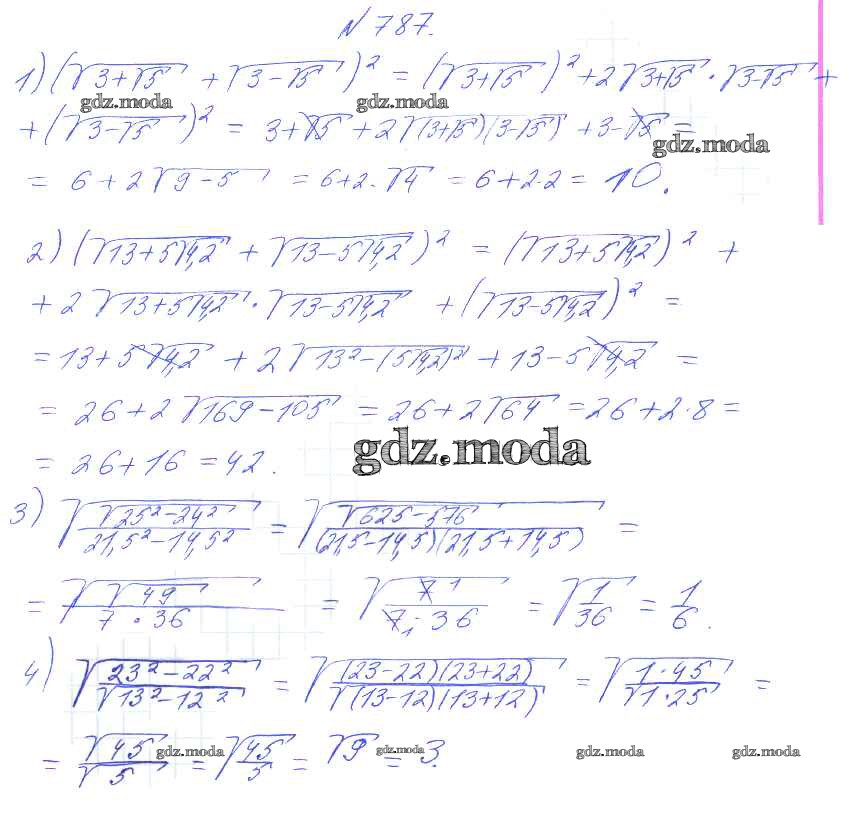 N 787.
1) (√(3+√5) + √(3-√5))² = (√(3+√5))² + 2√(3+√5)·√(3-√5) +
gdz.moda gdz.moda
+ (√(3-√5))² = 3+√5 + 2√((3+√5)(3-√5)) + 3-√5 =
gdz.moda
= 6 + 2√(9-5) = 6+2·√4 = 6+2·2 = 10.
2) (√(13+5√4,2) + √(13-5√4,2))² = (√(13+5√4,2))² +
+ 2√(13+5√4,2)·√(13-5√4,2) + (√(13-5√4,2))² =
= 13+5√4,2 + 2√(13²-(5√4,2)²) + 13-5√4,2 =
= 26+2√(169-105) = 26+2√64 = 26+2·8 =
= 26+16 = 42.
gdz.moda
3) √(√(25²-24²)/(21,5²-14,5²)) = √(√(625-576)/((21,5-14,5)(21,5+14,5))) =
= √(√49/(7·36)) = √(7 1/(7 1·36)) = √(1/36) = 1/6.
4) √(23²-22²)/√(13²-12²) = √((23-22)(23+22))/√((13-12)(13+12)) = √(1·45)/√(1·25) =
= √45/√5 = √(45/5) = √9 = 3.
gdz.moda gdz.moda gdz.moda gdz.moda